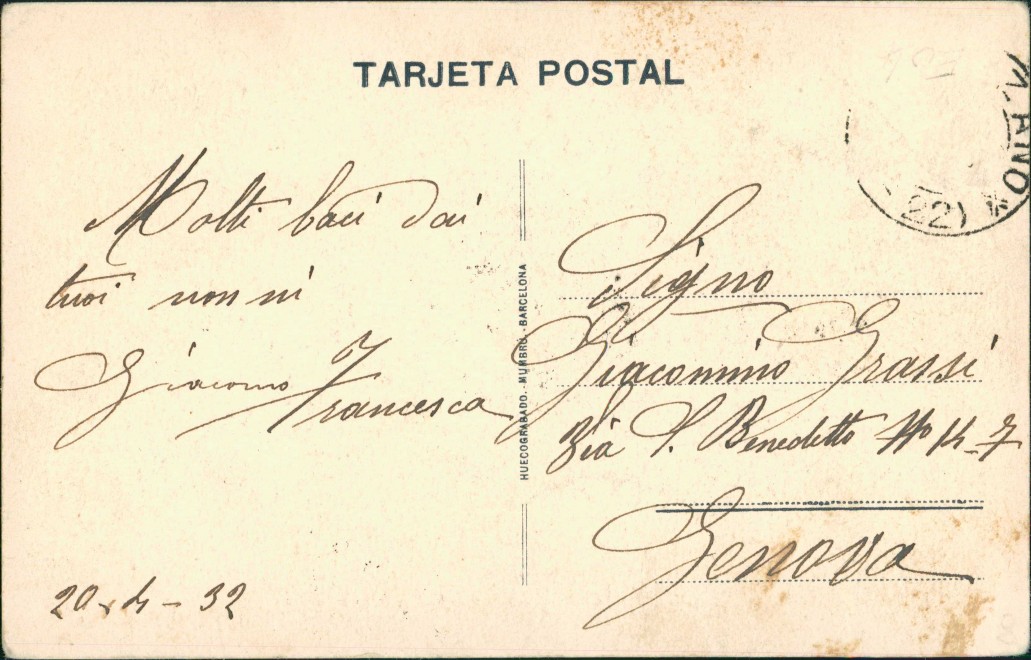 TARJETA POSTAL
Molti baci dai
tuoi nonni
Giacomo Francesca
20-4-32
HUECOGRABADO.-MUMBRÚ.-BARCELONA
Signo
Giacomino Grassi
Via S. Benedetto No 14-7
Genova
(22)